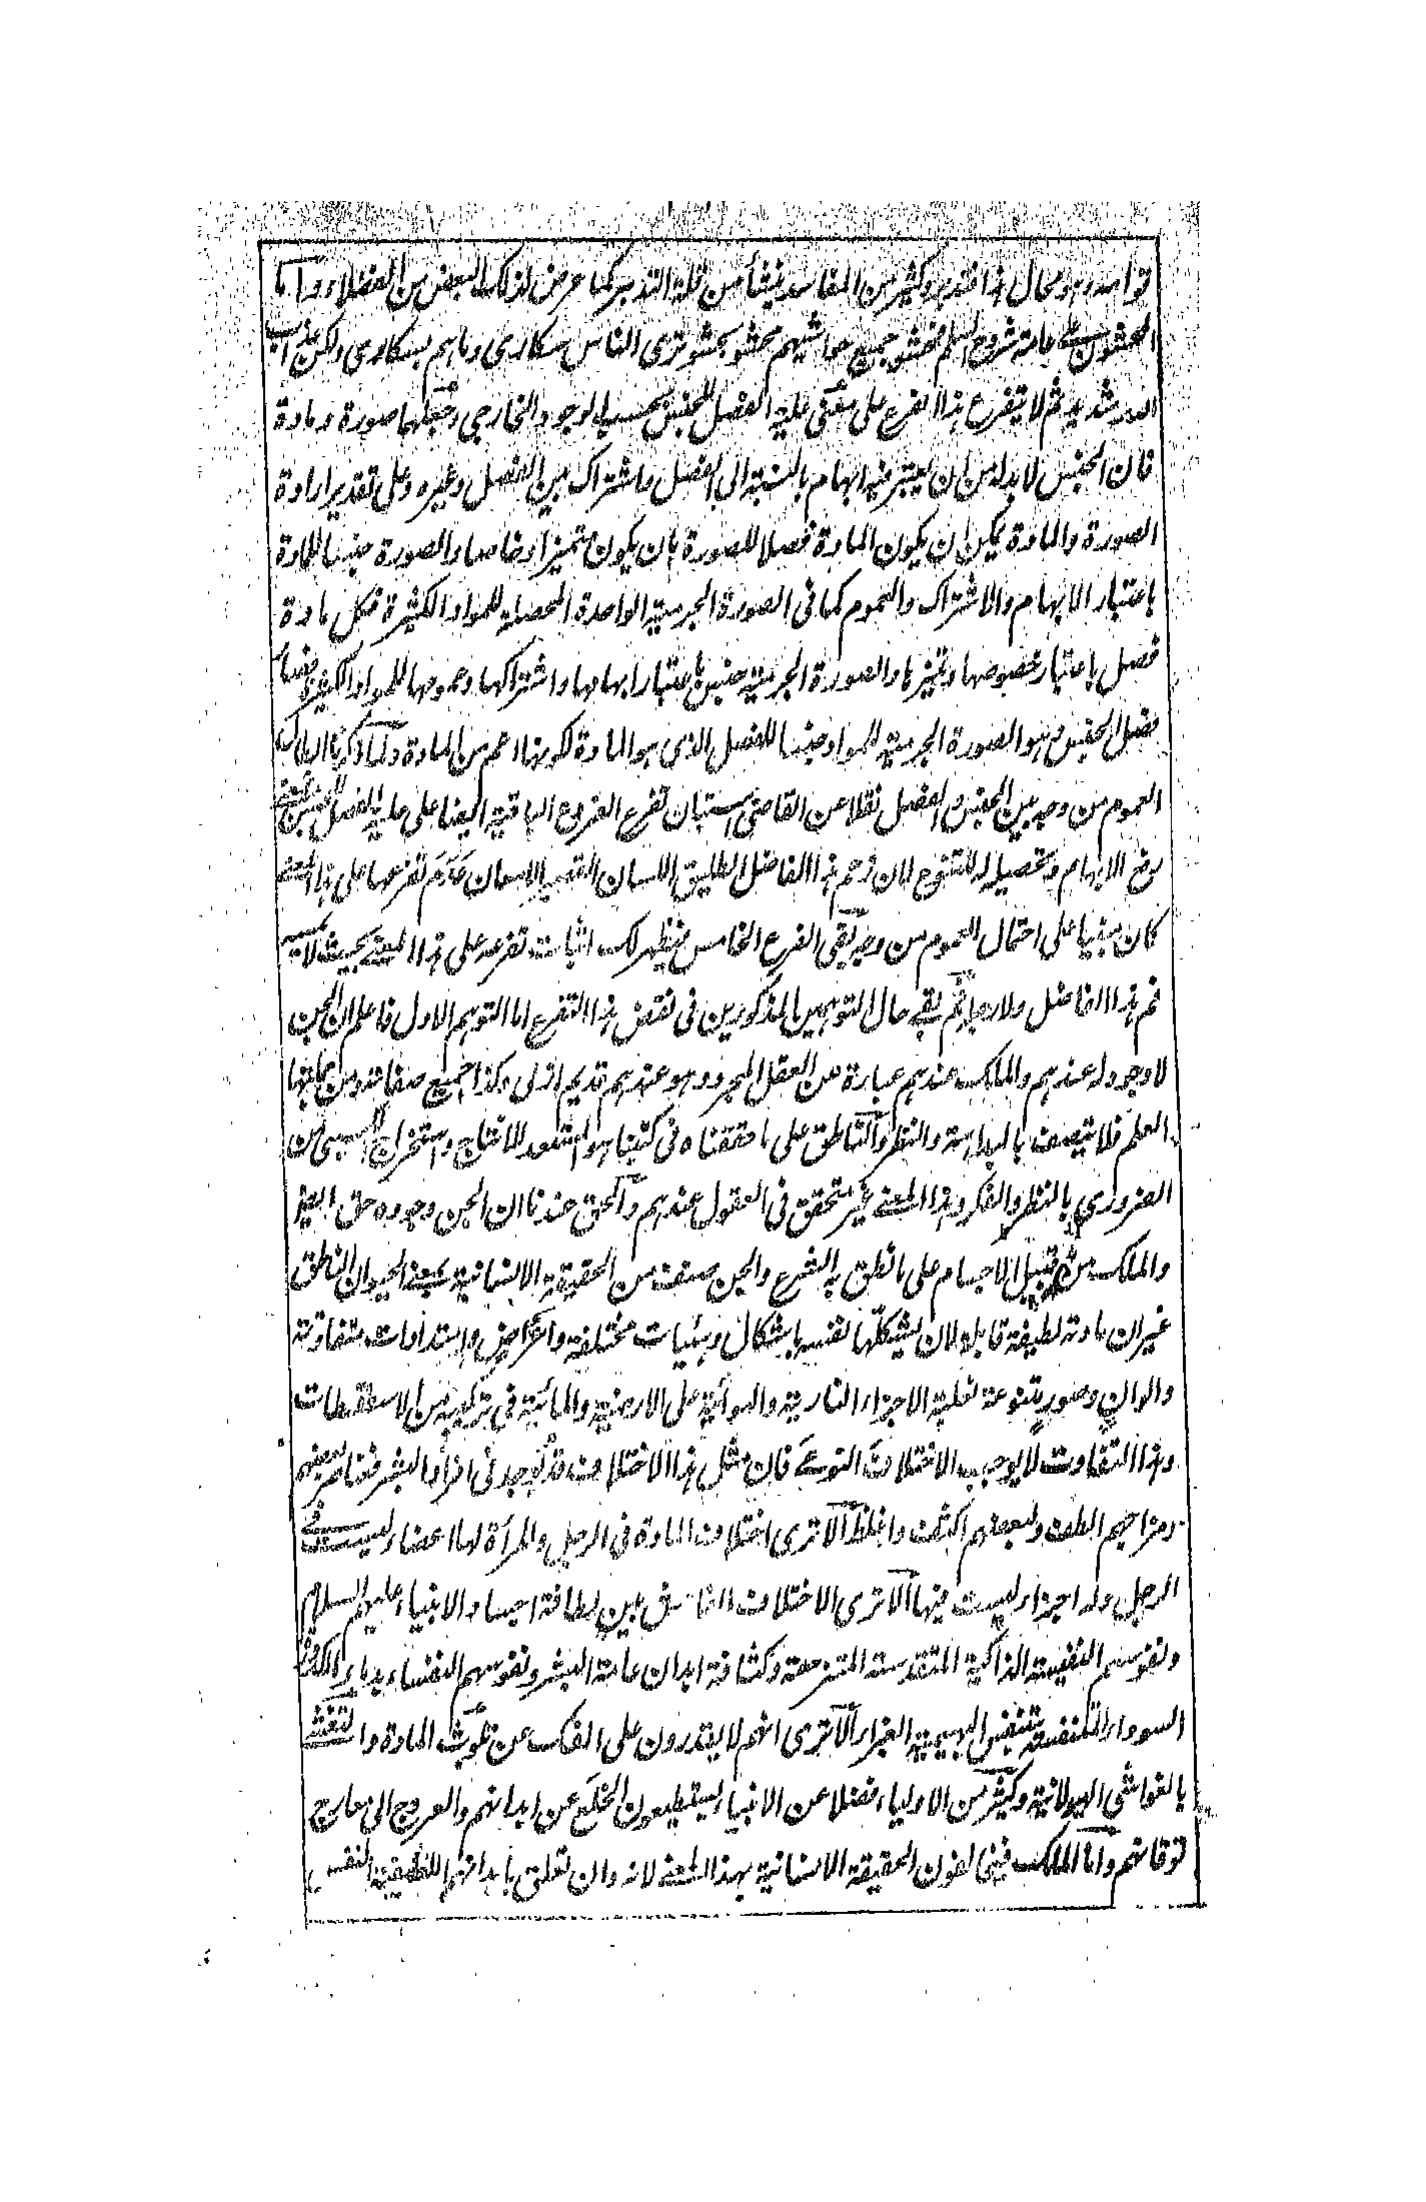 توارده وهو محال هذا فتدبر وكثير من المفاسد ينشأ من قلة التدبر كما عرض لذلك البعض من الفضلاء واما
المحشون على عامة شروح السلم فحشو جميع حواشيهم حشو بحشو ترى الناس سكارى وما هم بسكارى ولكن عذاب
الله شديد ثم لا يتفرع هذا الفرع على معنى علية الفصل للجنس بحسب الوجود الخارجي وجعلهما صورة ومادة
فان الجنس لا بد له من ان يعتبر فيه ابهام بالنسبة الى الفصل واشتراك بين الفصل وغيره وعلى تقدير ارادة
الصورة والمادة يمكن ان يكون المادة فصلا للصورة بان يكون متميزا وخاصا والصورة جنسا للمادة
باعتبار الابهام والاشتراك والعموم كما في الصورة الجرمية الواحدة المحصلة للمواد الكثيرة فكل مادة
فصل باعتبار خصوصها وتميزها والصورة الجرمية جنس باعتبار ابهامها واشتراكها وعمومها للمواد الكثيرة فصار
فصل الجنس وهو الصورة الجرمية للمواد جنسا للفصل الذي هو المادة لكونها اعم من المادة ولما ذكرنا ابطال
العموم من وجه بين الجنس والفصل نقلا عن القاضي استبان تفرع الفروع الباقية ايضا على علية الفصل للجنس بمعنى
رفع الابهام وتحصيله للتنوع لان زعم هذا الفاضل الطليق اللسان بالامعان عدم تفرعها على هذا المعنى
كان مبنيا على احتمال العموم من وجه بقي الفرع الخامس فيظهر لك اثبات تفرعه على هذا المعنى بحيث لا
ثم هذا الفاضل ولا رجل ثم بقي حال التوهمين المذكورين في نقض هذا التفرع اما التوهم الاول فاعلم ان الجن
لا وجود له عندهم والملك عندهم عبارة عن العقل المجرد وهو عندهم قديم ازلي وكذا جميع صفاته ومن جملتها
العلم فلا يتصف بالبداهة والنظر والناطق على ما حققناه في كتبنا هو المستعد للانتاج واستخراج الكسبي من
الضروري بالنظر والفكر وهذا المعنى غير متحقق في العقول عندهم والحق عندنا ان الجن وجوده حق ايضا
والملك من قبيل الاجسام على ما نطق به الشرع والجن صنف من الحقيقة الانسانية بمعنى الحيوان الناطق
غير ان مادته لطيفة قابلة لان يشكلها نفسه باشكال وهيئات مختلفة واعراض واستدادات متفاوتة
والوان وصور متنوعة لغلبة الاجزاء النارية والهوائية على الارضية والمائية في تركيبه من الاسطقسات
وهذا التفاوت لا يوجب الاختلاف النوعي فان مثل هذا الاختلاف قد يوجد في افراد البشر فعناصر بعضهم
ومزاجهم الطف ولبعضهم اكثف واغلظ الا ترى اختلاف المادة في الرجل والمرأة لها اعضاء ليست في
الرجل وله اجزاء ليست فيها الا ترى الاختلاف الفاحش بين لطافة اجساد الانبياء عليهم السلام
ونفوسهم النفيسة الذاكية المتقدسة وكثافة ابدان عامة البشر ونفوسهم
السوداء المتنفسة بتنفس البهيمية الغبراء الا ترى انهم لا يقدرون على الفك عن تلوث المادة والتغشي
بالغواشي الهيولانية وكثير من الاولياء فضلا عن الانبياء يستطيعون الخلع عن ابدانهم والعروج الى معارج
توقانهم واما الملك فيخالفون الحقيقة الانسانية بهذا المعنى لانه وان تعلق بابدانهم اللطيفة النفس